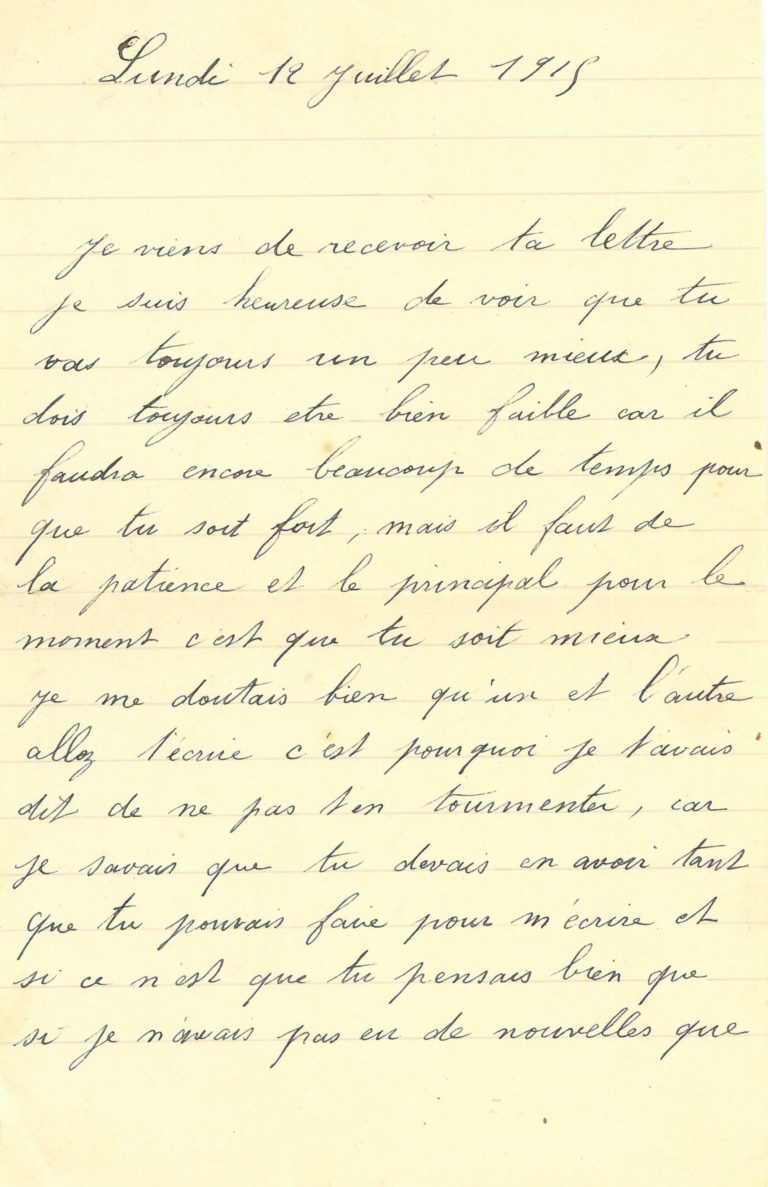 Lundi 12 Juillet 1915
Je viens de recevoir ta lettre
je suis heureuse de voir que tu
vas toujours un peu mieux, tu
dois toujours etre bien faible car il
faudra encore beaucoup de temps pour
que tu soit fort, mais il faut de
la patience et le principal pour le
moment c'est que tu soit mieux
je me doutais bien qu'un et l'autre
allez t'écrire c'est pourquoi je t'avais
dit de ne pas t'en tourmenter, car
je savais que tu devais en avoir tant
que tu pouvais faire pour m'écrire et
si ce n'est que tu pensais bien que
si je n'avais pas eu de nouvelles que